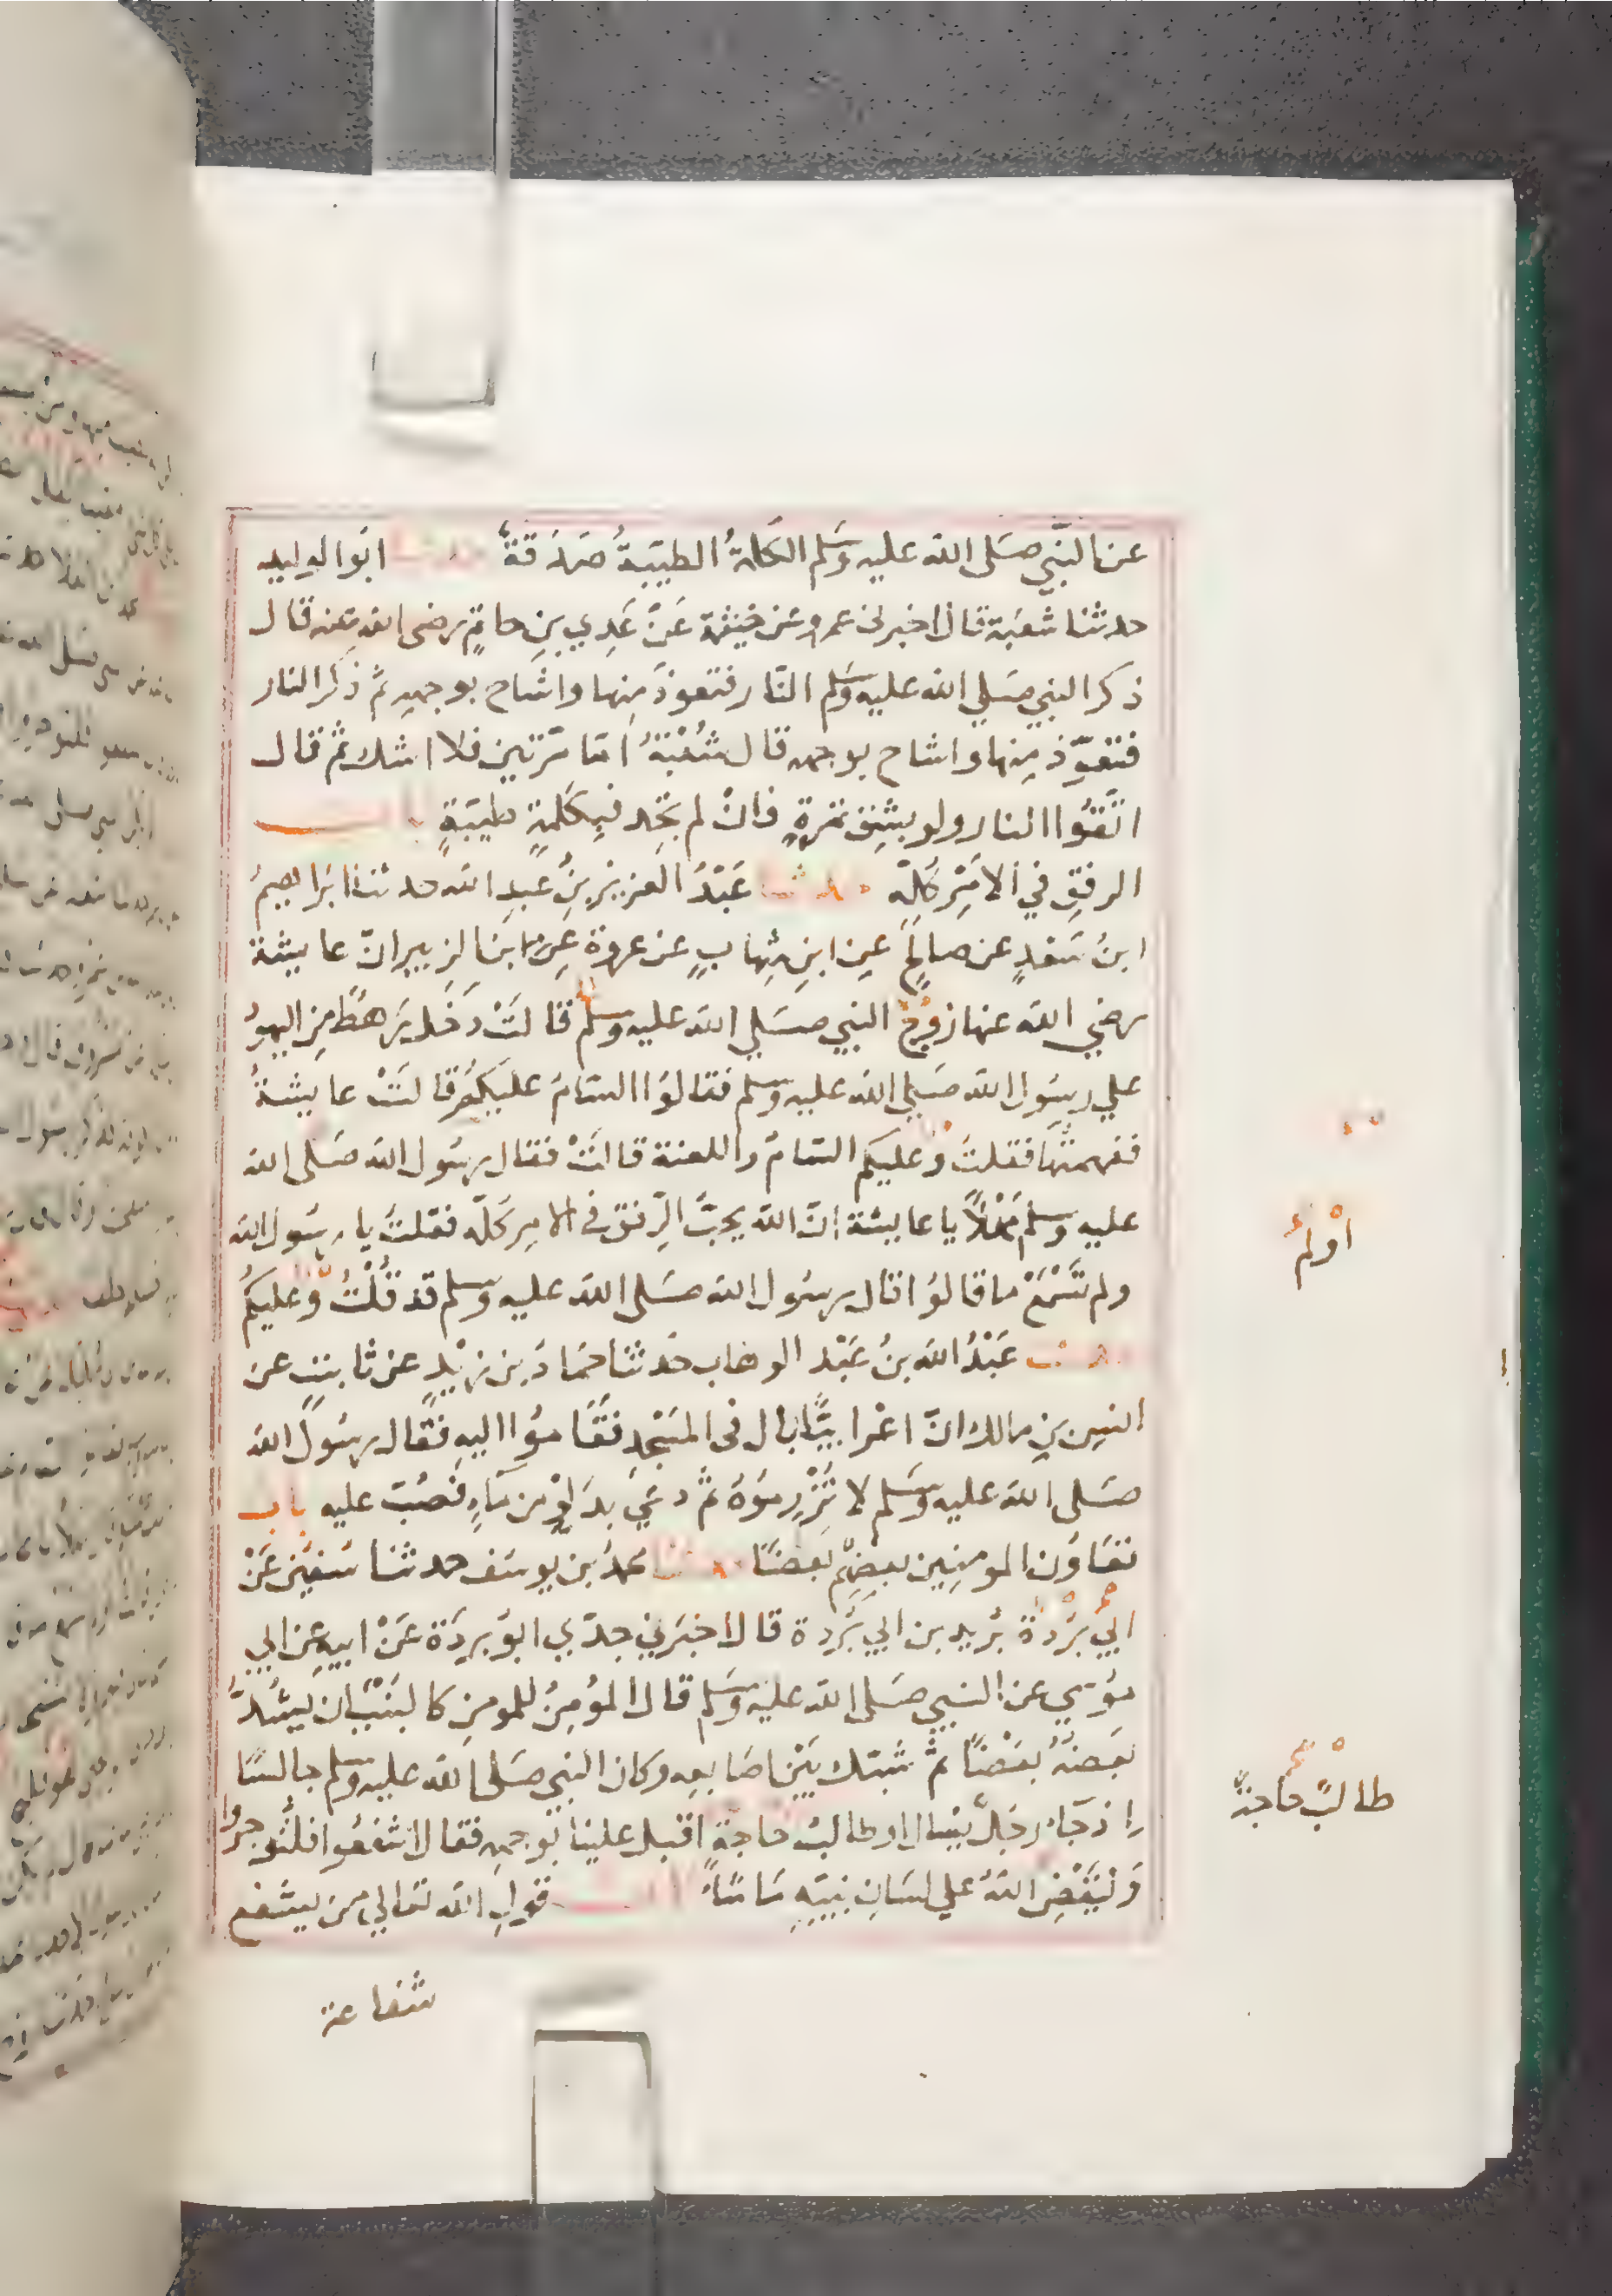 عن النَّبي صَلى الله عليه وسَلم الكلمةُ الطيّبةُ صَدَقةٌ حدثنا ابُو الوليد
حدثنا شعبَة قال اخبرني عمرو عن خيثمة عَنْ عَدِي بنِ حاتمٍ رضى الله عنه قال
ذكر النبي صَلي الله عليه وسَلم النَّار فتعوذَ مِنها واشَاح بوجهِه ثم ذكَر النار
فتعوّذ مِنها واشاح بوجهه قال شُعْبَةُ امّا مرّتين فلا اشك ثم قال
اتَّقُوا النار ولو بشِق تمرةٍ فانْ لم تجد فبِكَلمةٍ طيبَةٍ باب
الرفقِ في الامْرِ كُلِّه حدثنا عَبْدُ العزيز بنُ عَبدِ الله حدثنا ابرَاهيمُ
ابنُ سَعدٍ عن صالحٍ عن ابنِ شِهابٍ عن عروة عن ابن الزبير انّ عايشة
رضي الله عنها زوجَ النبي صسَلي الله عليه وسلم قالَتْ دَخَل رَهطٌ مِن اليهودُ
علي رسُول الله صَلي الله عليه وسلم فقالوُا السَّامُ عليكم قالَتْ عايشةُ
ففهمتُها فقلتُ وعليكم السّامُ واللعنة قالتْ فقال رسُول الله صَلى الله
عليه وسلم مَهْلاً يا عايشة انّ الله يحبُّ الرِّفق في الامرِ كلّه فقلتُ يا رسُول الله
ولم تَسْمَعْ ما قالوُا قال رسُول الله صَلى الله عليه وسلم قد قُلْتُ وعَليكُم
حدثنا عَبْدُ الله بنُ عَبْد الوهاب حَدثنا حمّادُ بن زيْدٍ عن ثابتٍ عن
انسِ بنِ مالك انّ اعْرابيًّا بال فى المَسْجِد فقَامُوا اليهِ فقال رسُول الله
صَلى الله عليه وسَلم لا تُزْرِمُوهُ ثم دعَي بدَلوٍ من مآءٍ فصُبّ عليه باب
تعَاوُن المومنِين بعضِهم بعضًا حدثنا محمدُ بن يوسَف حدثنا سُفين عَنْ
ابي بُرْدةَ بُريد بن ابي بُردة قال اخبَرني جدّي ابُو بردَة عَنْ ابيهِ عن ابي
مُوسي عن النبي صَلى الله عليه وسَلم قال المؤمِنُ للمومنِ كالبُنْيَان يشُدُّ
بعَضهُ بعَضًا ثم شَبّك بَيْن اصَابعِه وكان النبي صَلى الله عليه وسلم جالسًا
اذ جَآء رجَلٌ يسال او طالبُ حاجةٍ اقبل علينا بوجهه فقال اشفعُوا فلتُوجرُوا
وَليَقْضِ الله علي لسَانِ نبيّه مَا شاء باب قولِ الله تعَالي من يشَفع
شفاعة
اوَلم
طالبٌ حاجةً